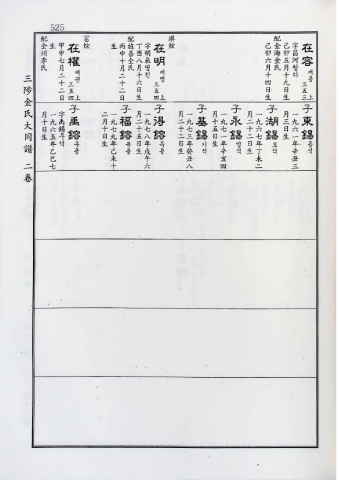 525
在容 재용 三五三 上
字昌河창하
己卯五月十九日生
配金海金氏
己卯六月十四日生
子東錫 동석
一九六一年辛丑三
月三日生
子湖錫 호석
一九六七年丁未二
月二十二日生
子永錫 영석
一九七一年辛亥四
月十五日生
子基錫 기석
一九七三年癸丑八
月二十二日生
在明 재명 三五四 上
丁酉八月十六日生
丙申十月二十二日
生
子得鎔 득용
一九七八年戊午六
月二十五日生
子福鎔 복용
一九七九年己未十
二月十日生
在權 재권 三五四 上
甲申七月二十二日
生
配全州李氏
子禹鎔 우용
字禹錫우석
一九六五年乙巳七
月十日生
三陟金氏大同譜 二卷